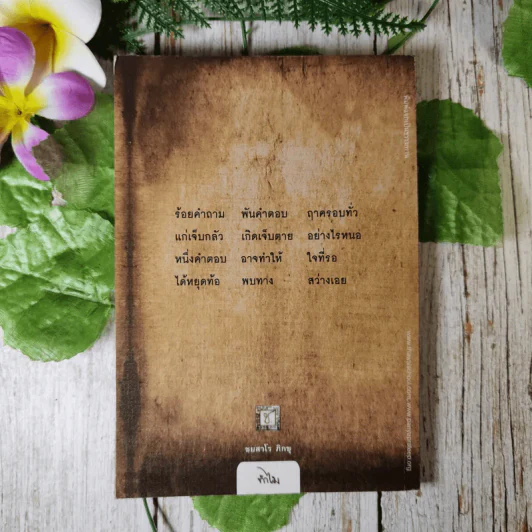 ร้อยคำถาม พันคำตอบ ฤาครอบทั่ว
แก่เจ็บกลัว เกิดเจ็บตาย อย่างไรหนอ
หนึ่งคำตอบ อาจทำให้ ใจที่รอ
ได้หยุดท้อ พบทาง สว่างเอย
ชยสาโร ภิกขุ
ทำไม